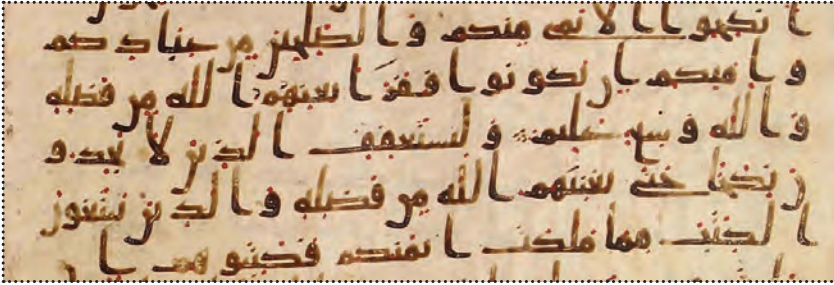 ا نكحوا ا لا يمى منكم و ا لصلحين من عبا د كم
و ا مايكم ا ن يكو نو ا فقر ا يغنهم ا لله من فضله
و ا لله و سع عليم و ليستعفف ا لذ ين لا يجد و
ن نكحا حتى يغنيهم ا لله من فضله و ا لذ ين يبتغون
ا لكتب مما ملكت ا يمنكم فكتبو هم ا